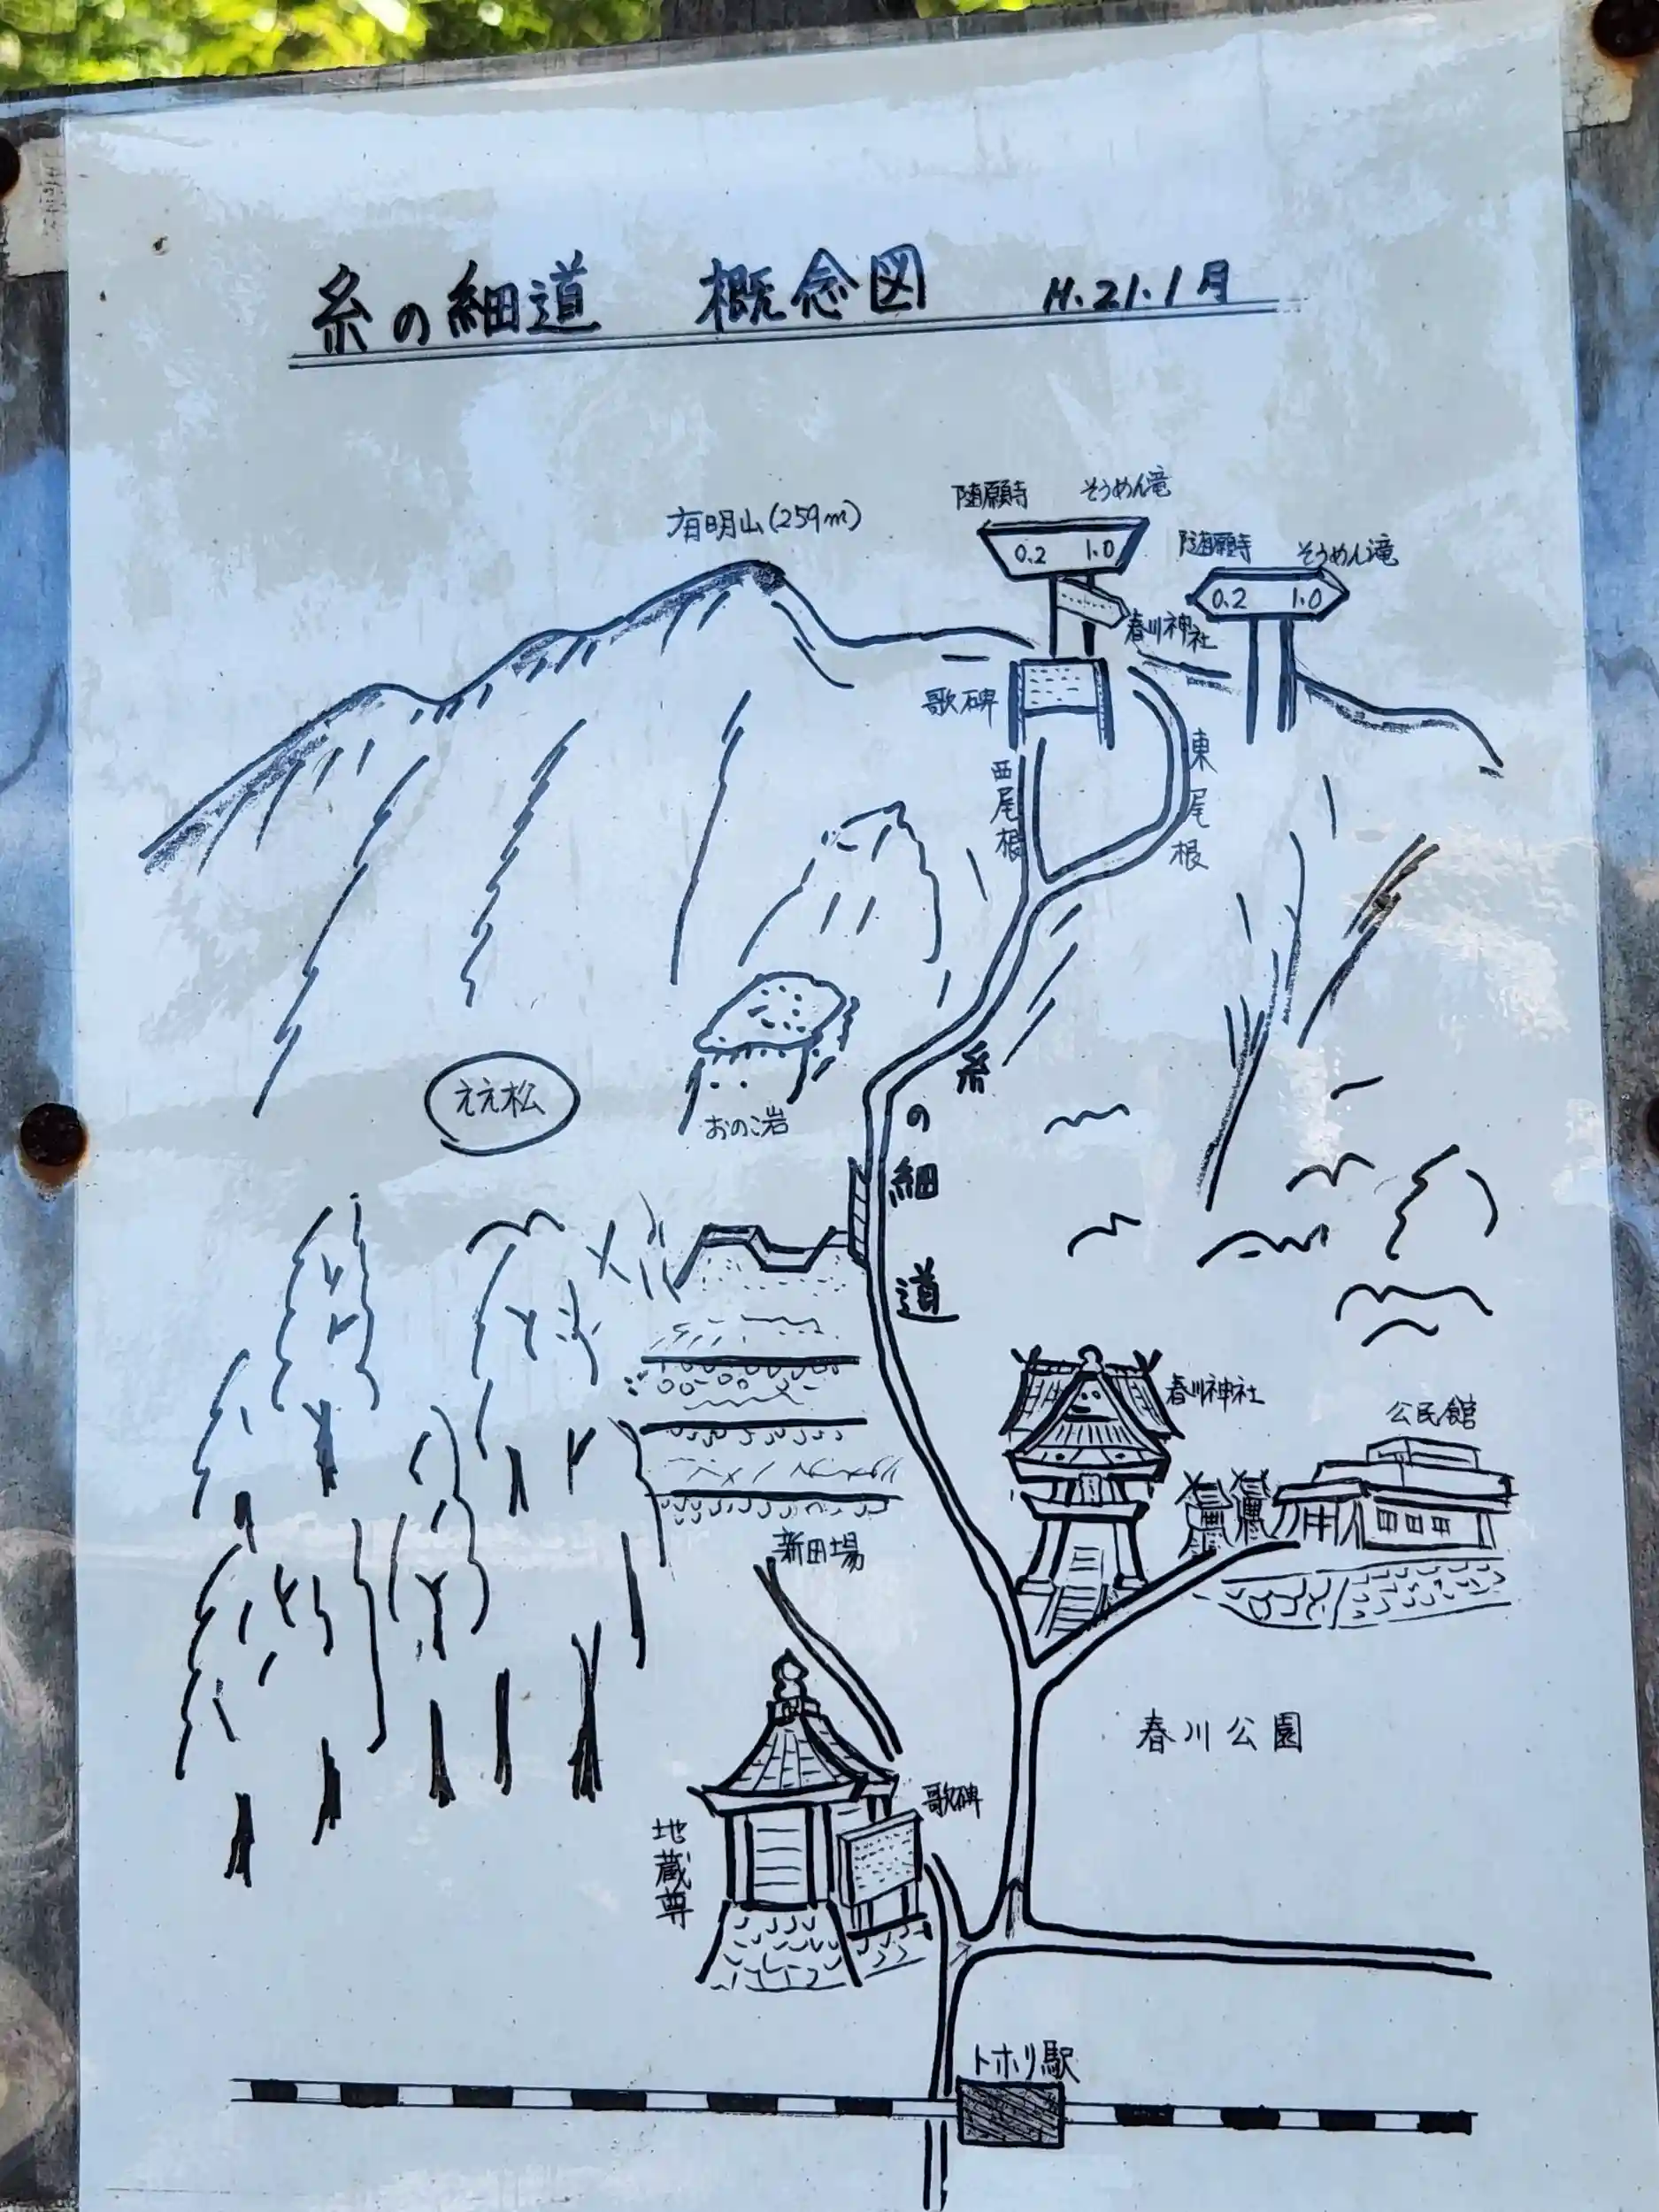 糸の細道 概念図 H.21.1月
有明山(259m)
随願寺 そうめん滝
0.2 1.0
随願寺 そうめん滝
0.2 1.0
春川神社
歌碑
西尾根
東尾根
ええ松
おのこ岩
糸の細道
春川神社
公民館
新田場
春川公園
歌碑
地蔵尊
トホリ駅